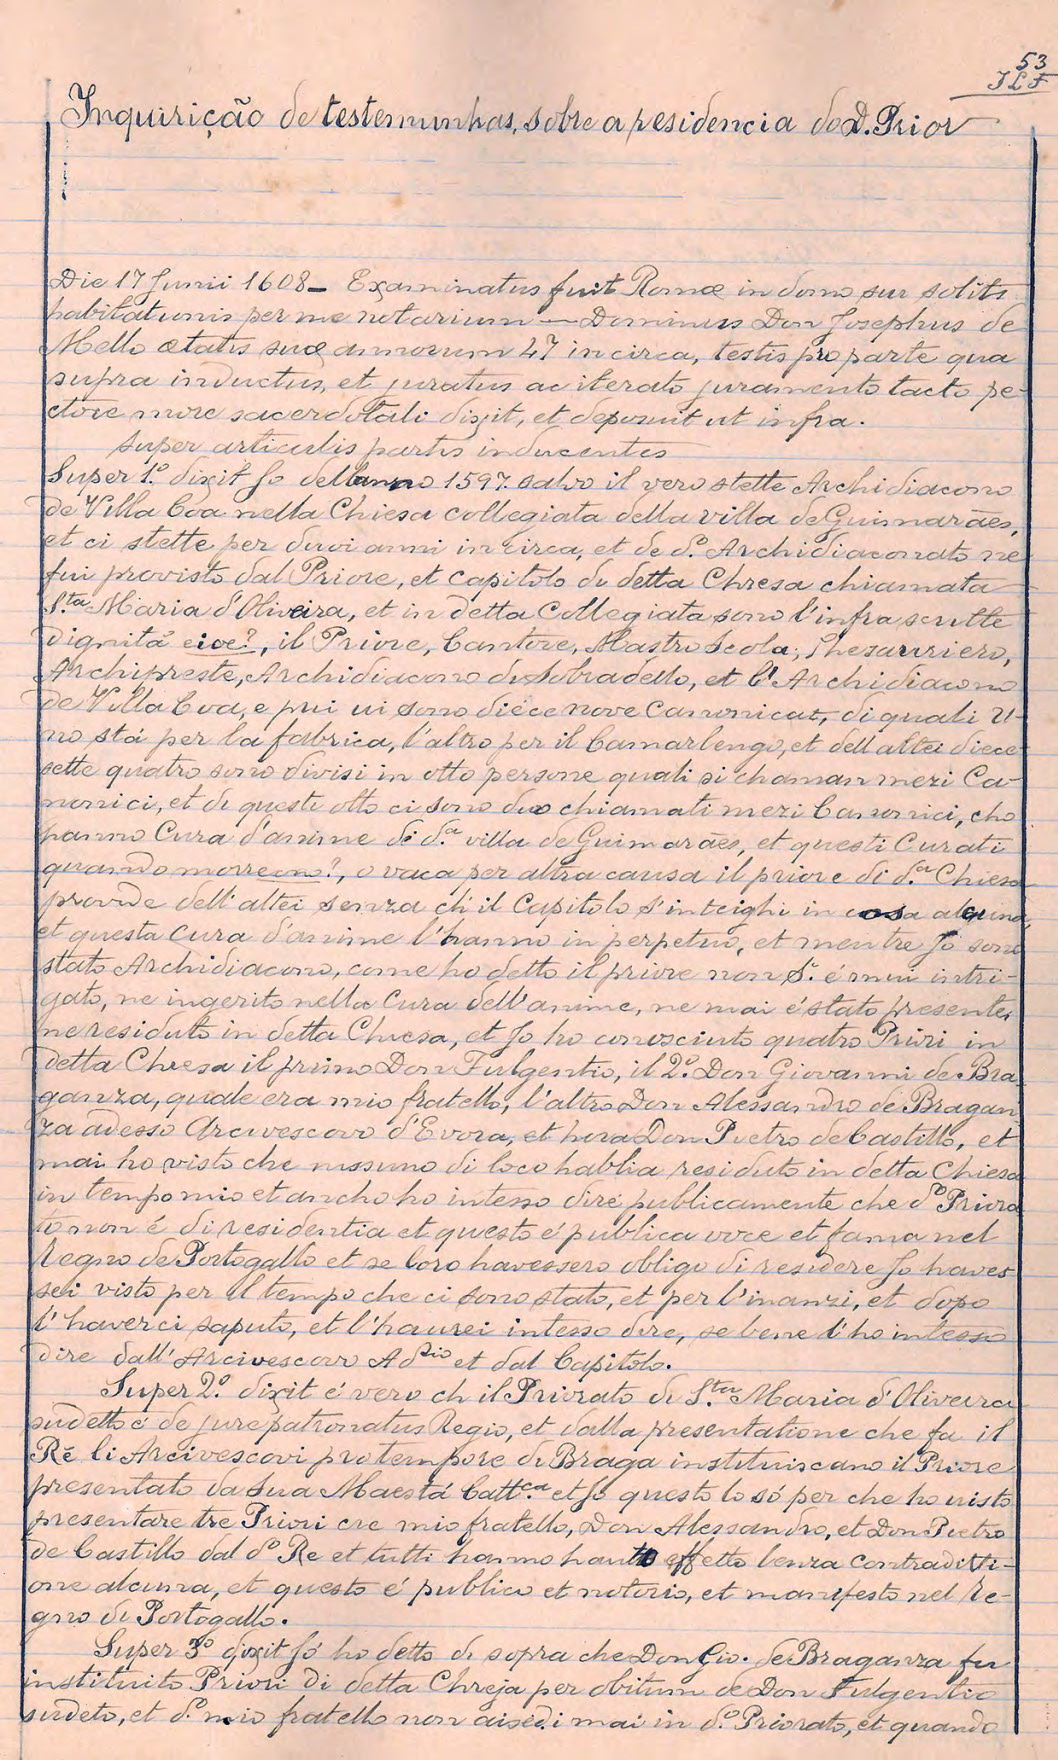 53
J L F
Inquirição de testemunhas, sobre a residencia do D. Prior
Die 17 Junii 1608 – Examinatus fuit Romæ in domo sur solits
habitationis per me notarium — Dominus Don Josephus de
Mello ætatis suæ annorum 47 incirca, testis pro parte qua
supra inductus, et juratus ac iterato juramento tacto pe-
ctore more sacerdotali dixit, et deposuit ut infra.
Super articulis partis inducentes
Super 1.º dixit Jo dell'anno 1597. salvo il vero stette Archidiacono
de Villa Cova nella Chiesa collegiata della villa de Guimarães,
et ci stette per duoi anni in circa, et de d.º Archidiaconato ne
fui provisto dal Priore, et capitolo di detta Chiesa chiamata
S.ta Maria d'Oliveira, et in detta Collegiata sono l'infrascritte
dignitá cioe?, il Priore, Cantore, Mastro Scola, Thesauriero,
Archipreste, Archidiacono du Sobradello, et l' Archidiacono
de Villa Cova, e pui ui sono diece nove Canonicat, di quali U-
no stá per la fabrica, l'altro per il Camarlengo, et dell'altei diece
sette quatro sono divisi in otto persone quali si chaman mezi Ca-
nonici, et di questi otto ci sono duo chiamati mezi Canonici, cho
hanno Cura d'anime di d.ª villa de Guimarães, et questi Curati
quando morreono?, o vaca per altra causa il priore di d.ª Chiesa
provide dell'altei senza ch'il Capitolo s'inteighi in cosa alcuna,
et questa Cura d'anime l'hanno in perpetuo, et mentre Jo sono
stato Archidiacono, come ho detto il priore non S' é mai intri-
gato, ne ingerito nella Cura dell'anime, ne mai é stato presente,
ne residuto in detta Chiesa, et Jo ho conosciuto quatro Priori in
detta Chiesa il primo Don Fulgentio, il 2.º Don Giovanni de Bra-
ganza, quale era mio fratello, l'altro Don Alessandro de Bragan
za adesso Arcivescovo d'Evora, et hora Don Pietro de Castillo, et
mai ho visto che nissuno di loco habbia residuto in detta Chiesa
in tempo mio et ancho ho inteso dire publicamente che d.º Priora
to non é di residentia et questo é publica voce et fama nel
Regno de Portogallo et se loro havessero obligo di residere Jo haves
sei visto per il tempo che ci sono stato, et per l'inanzi, et dopo
l'haverci saputo, et l'haurei inteso dire, se bene l'ho intesso
dire dall'Arcivescovo A dio et dal Capitolo.
Super 2.º dixit é vero ch il Priorato di S.ta Maria d'Oliveira
sudetto é de jure patronatus Regio, et dalla presentatione che fa il
Ré li Arcivescovi pro tempore di Braga instituiscano il Priore
presentato da Sua Maestá Catt.ca et Jo questo lo só per che ho uisto
presentare tre Priori cre mio fratello, Don Alessandro, et Don Pietro
de Castillo dal d.º Re et tutti hanno hauto effetto senza contraditti-
one alcuna, et questo é publico et notorio, et manifesto nel Re-
gno di Portogallo.
Super 3º dixit Jó ho detto di sopra che Don Gio. de Braganza fu
instituito Priori di detta Chieja per obitum de Don Fulgentio
sudeto, et d.º mio fratello non risedi mai in d.º Priorato, et quando